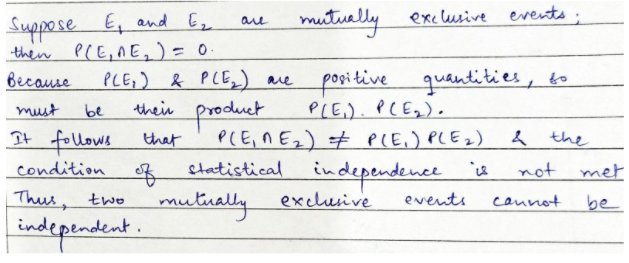 Suppose E₁ and E₂ are mutually exclusive events;
then P(E₁∩E₂) = 0.
Because P(E₁) & P(E₂) are positive quantities, so
must be their product P(E₁). P(E₂).
It follows that P(E₁∩E₂) ≠ P(E₁)P(E₂) & the
condition of statistical independence is not met
Thus, two mutually exclusive events cannot be
independent.